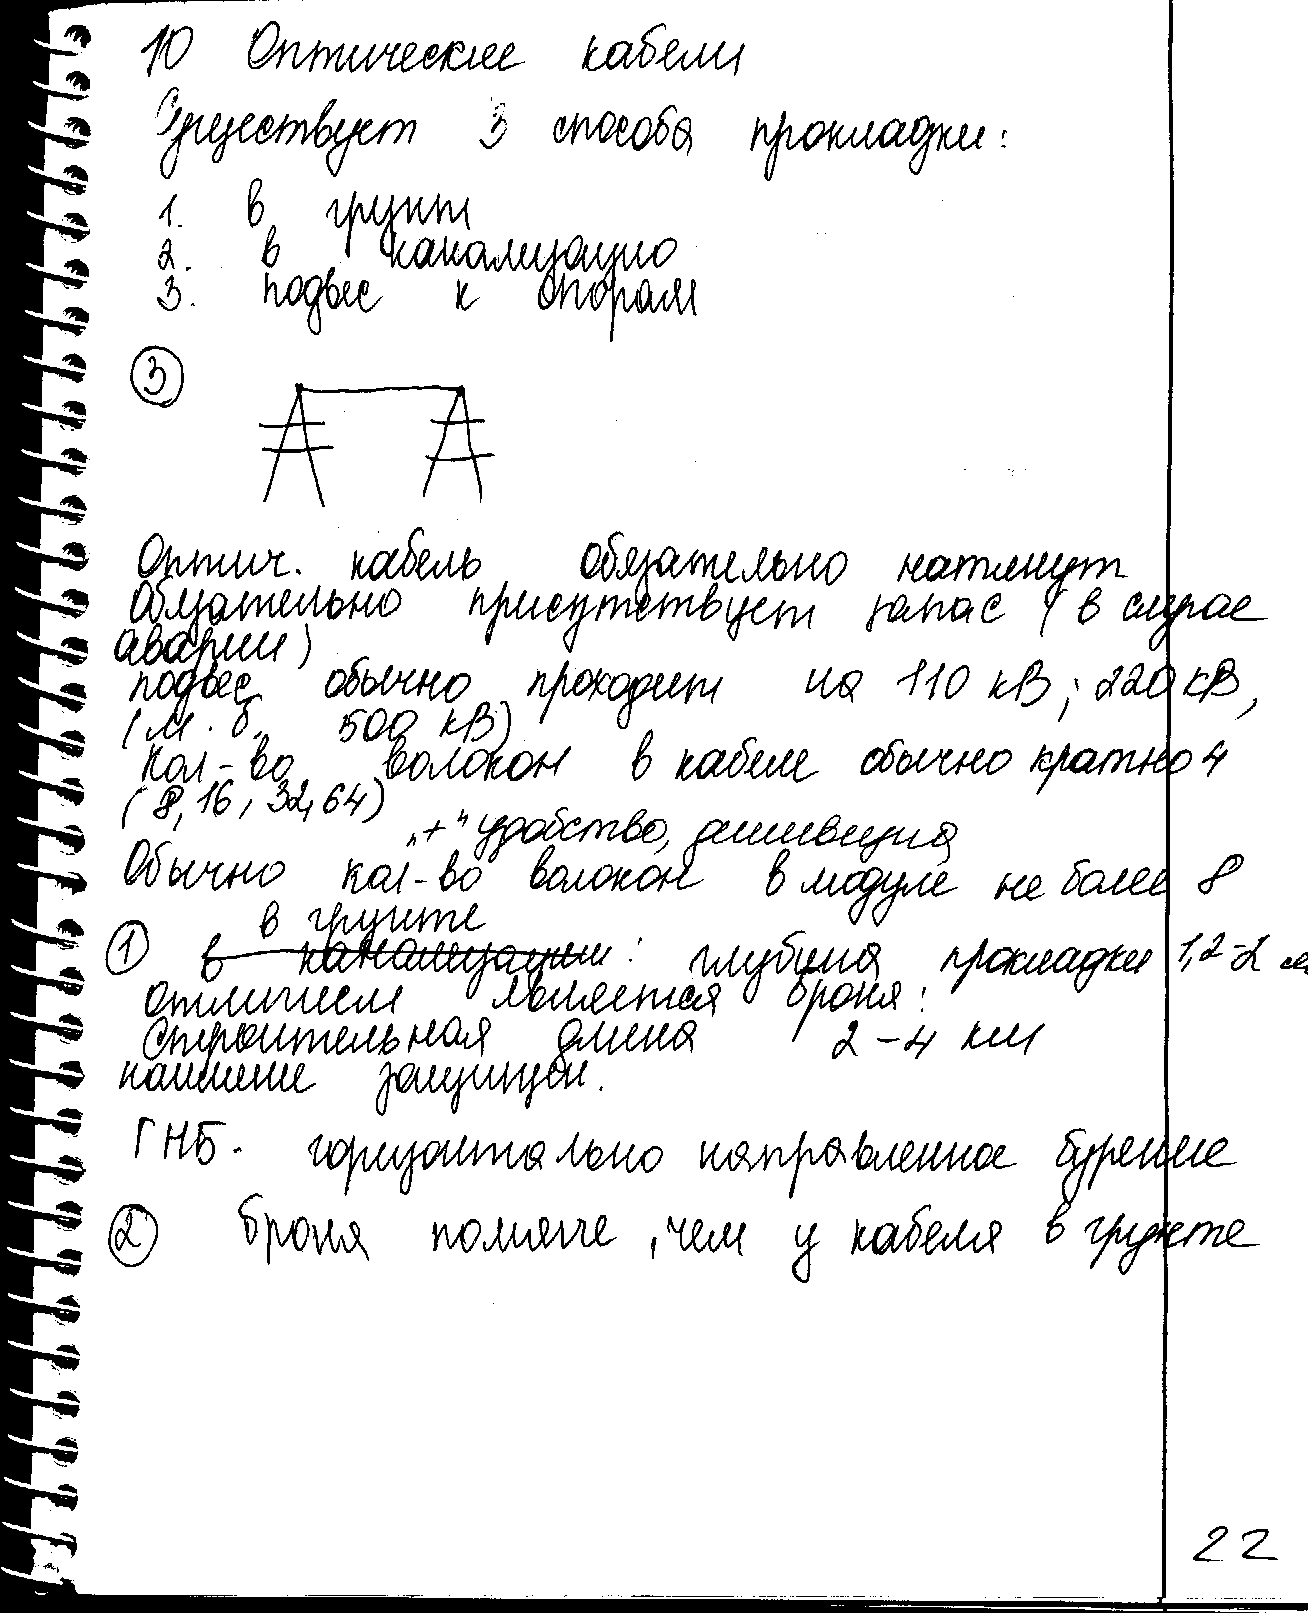 10 Оптические кабели
Существует 3 способа прокладки:
1. в грунт
2. в канализацию
3. подвес к опорам
3
Оптич. кабель обязательно натянут
Обязательно присутствует запас (в случае
аварии)
подвес обычно проходит на 110 кВ; 220 кВ,
(м. б. 500 кВ)
кол-во волокон в кабеле обычно кратно 4
(8, 16, 32, 64)
"+" удобство, дешевизна
Обычно кол-во волокон в модуле не более 8
в грунте
1 в канализации: глубина прокладки 1,2-2 м
отличием является броня:
строительная длина 2-4 км
защищен.
ГНБ. горизонтально направленное бурение
2 броня помягче, чем у кабеля в грунте
22